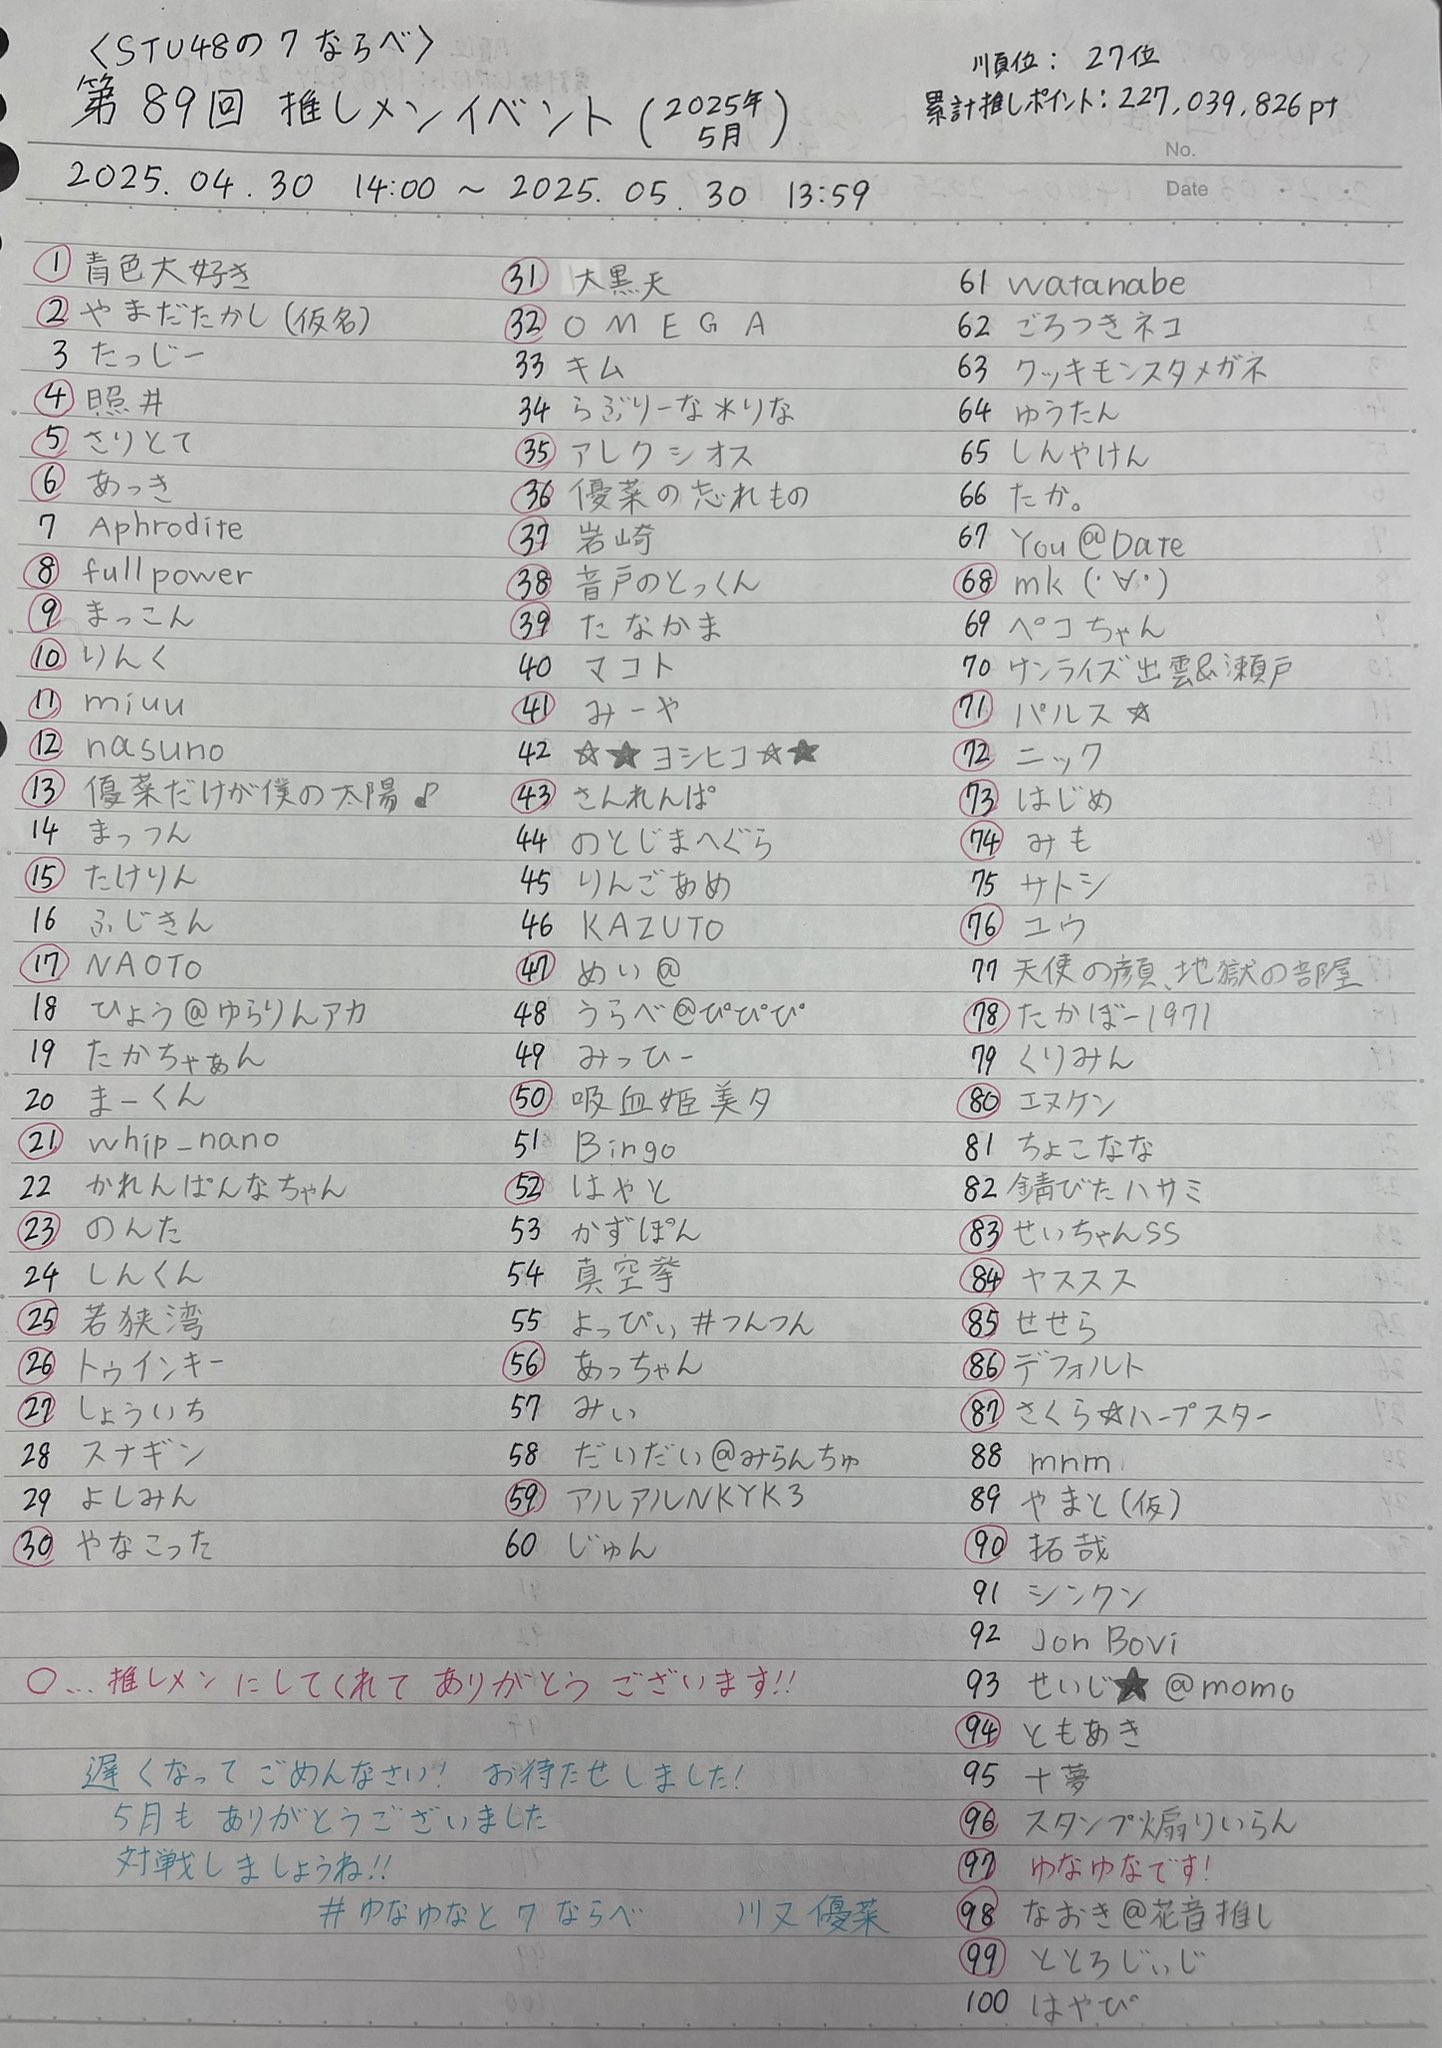 〈STU48の7ならべ〉
第89回 推しメンイベント(2025年5月)
順位: 27位
累計推しポイント: 227,039,826pt
No.
Date
2025.04.30 14:00 ~ 2025.05.30 13:59
1 青色大好き
2 やまだたかし(仮名)
3 たっじー
4 照井
5 さりとて
6 あっき
7 Aphrodite
8 fullpower
9 まっこん
10 りんく
11 miuu
12 nasuno
13 優菜だけが僕の太陽♪
14 まっつん
15 たけりん
16 ふじきん
17 NAOTO
18 ひょう@ゆらりんアカ
19 たかちゃぁん
20 まーくん
21 whip_nano
22 かれんぱんなちゃん
23 のんた
24 しんくん
25 若狭湾
26 トゥインキー
27 しょういち
28 スナギン
29 よしみん
30 やなこった
31 大黒天
32 OMEGA
33 キム
34 らぶりーな米りな
35 アレクシオス
36 優菜の忘れもの
37 岩崎
38 音戸のとっくん
39 たなかま
40 マコト
41 みーや
42 ☆★ヨシヒコ☆★
43 さんれんぱ
44 のとじまへぐら
45 りんごあめ
46 KAZUTO
47 めい@
48 うらべ@ぴぴぴ
49 みっひー
50 吸血姫美夕
51 Bingo
52 はやと
53 かずぽん
54 真空拳
55 よっぴぃ#つんつん
56 あっちゃん
57 みぃ
58 だいだい@みらんちゅ
59 アルアルNKYK3
60 じゅん
61 watanabe
62 ごろつきネコ
63 クッキモンスタメガネ
64 ゆうたん
65 しんやけん
66 たか。
67 You@Date
68 mk(・∀・)
69 ペコちゃん
70 サンライズ出雲&瀬戸
71 パルス☆
72 ニック
73 はじめ
74 みも
75 サトシ
76 ユウ
77 天使の顔、地獄の部屋
78 たかぼー1971
79 くりみん
80 エヌケン
81 ちょこなな
82 錆びたハサミ
83 せいちゃんSS
84 ヤススス
85 せせら
86 デフォルト
87 さくら☆ハープスター
88 mnm
89 やまと(仮)
90 拓哉
91 シンクン
92 Jon Bovi
93 せいじ★@momo
94 ともあき
95 十夢
96 スタンプ煽りいらん
97 ゆなゆなです!
98 なおき@花音推し
99 ととろじぃじ
100 はやぴ
○…推しメンにしてくれてありがとうございます!!
遅くなってごめんなさい! お待たせしました!
5月もありがとうございました
対戦しましょうね!!
#ゆなゆなと7ならべ 川又優菜